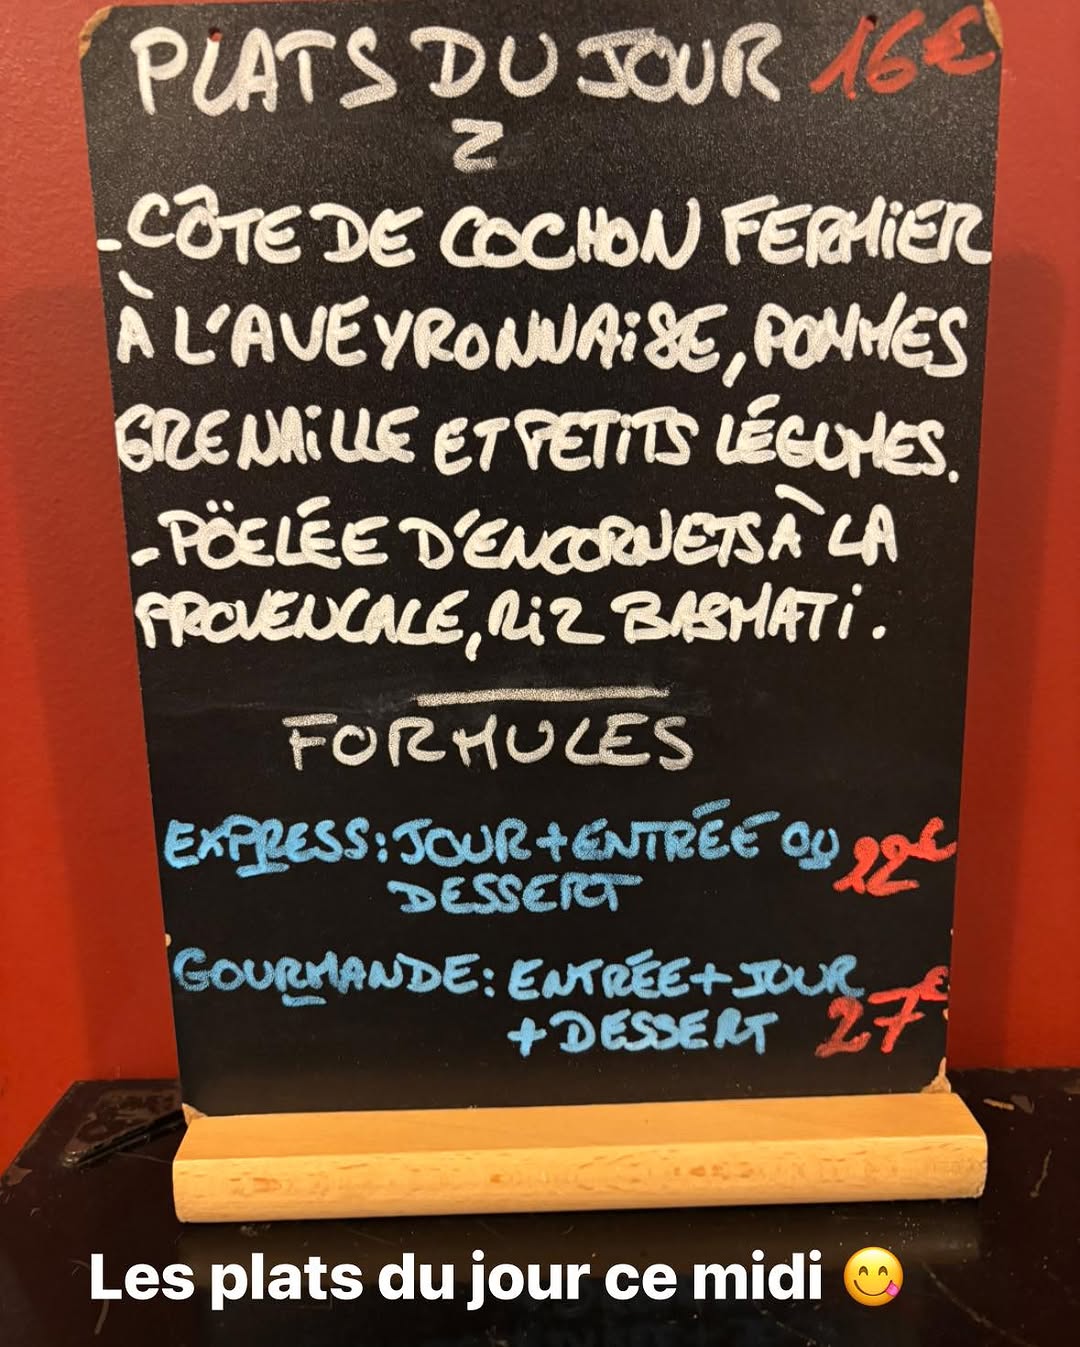 PLATS DU JOUR 16€
2
- CÔTE DE COCHON FERMIER
À L'AVEYRONNAiSE, POMMES
GRENAiLLE ET PETiTS LÉGUMES.
- PÖELÉE D'ENCORNETS À LA
PROVENCALE, RiZ BASMATi.
FORMULES
EXPRESS: JOUR + ENTRÉE OU 22€
DESSERT
GOURMANDE: ENTRÉE + JOUR
+ DESSERT 27€
Les plats du jour ce midi 😋